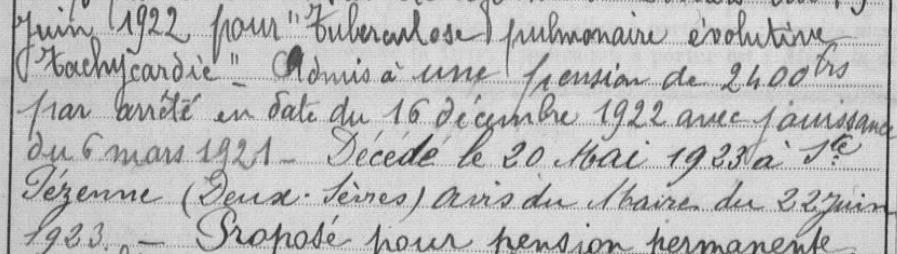 juin 1922 pour "Tuberculose pulmonaire évolutive
"Tachycardie" - Admis à une pension de 2400 frs
par arrêté en date du 16 décembre 1922 avec jouissance
du 6 mars 1921 - Décédé le 20 Mai 1923 à Ste
Pézenne (Deux-Sèvres) avis du Maire du 22 juin
1923. - Proposé pour pension permanente